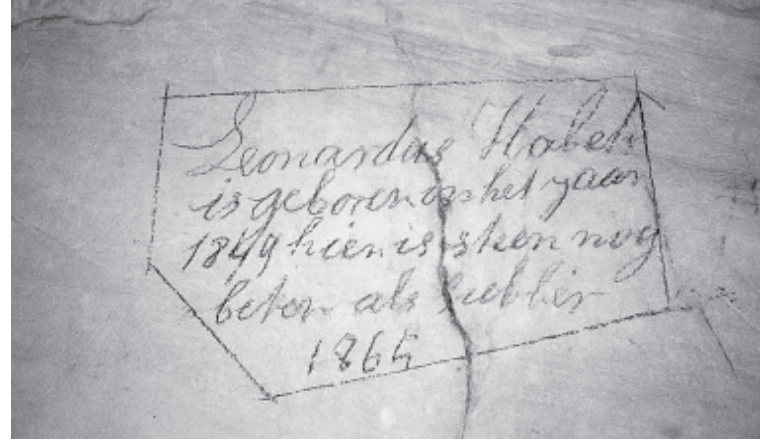 Leonardus Habets
is geboren in het yaar
1849 hier is steen nog
beter als
1865